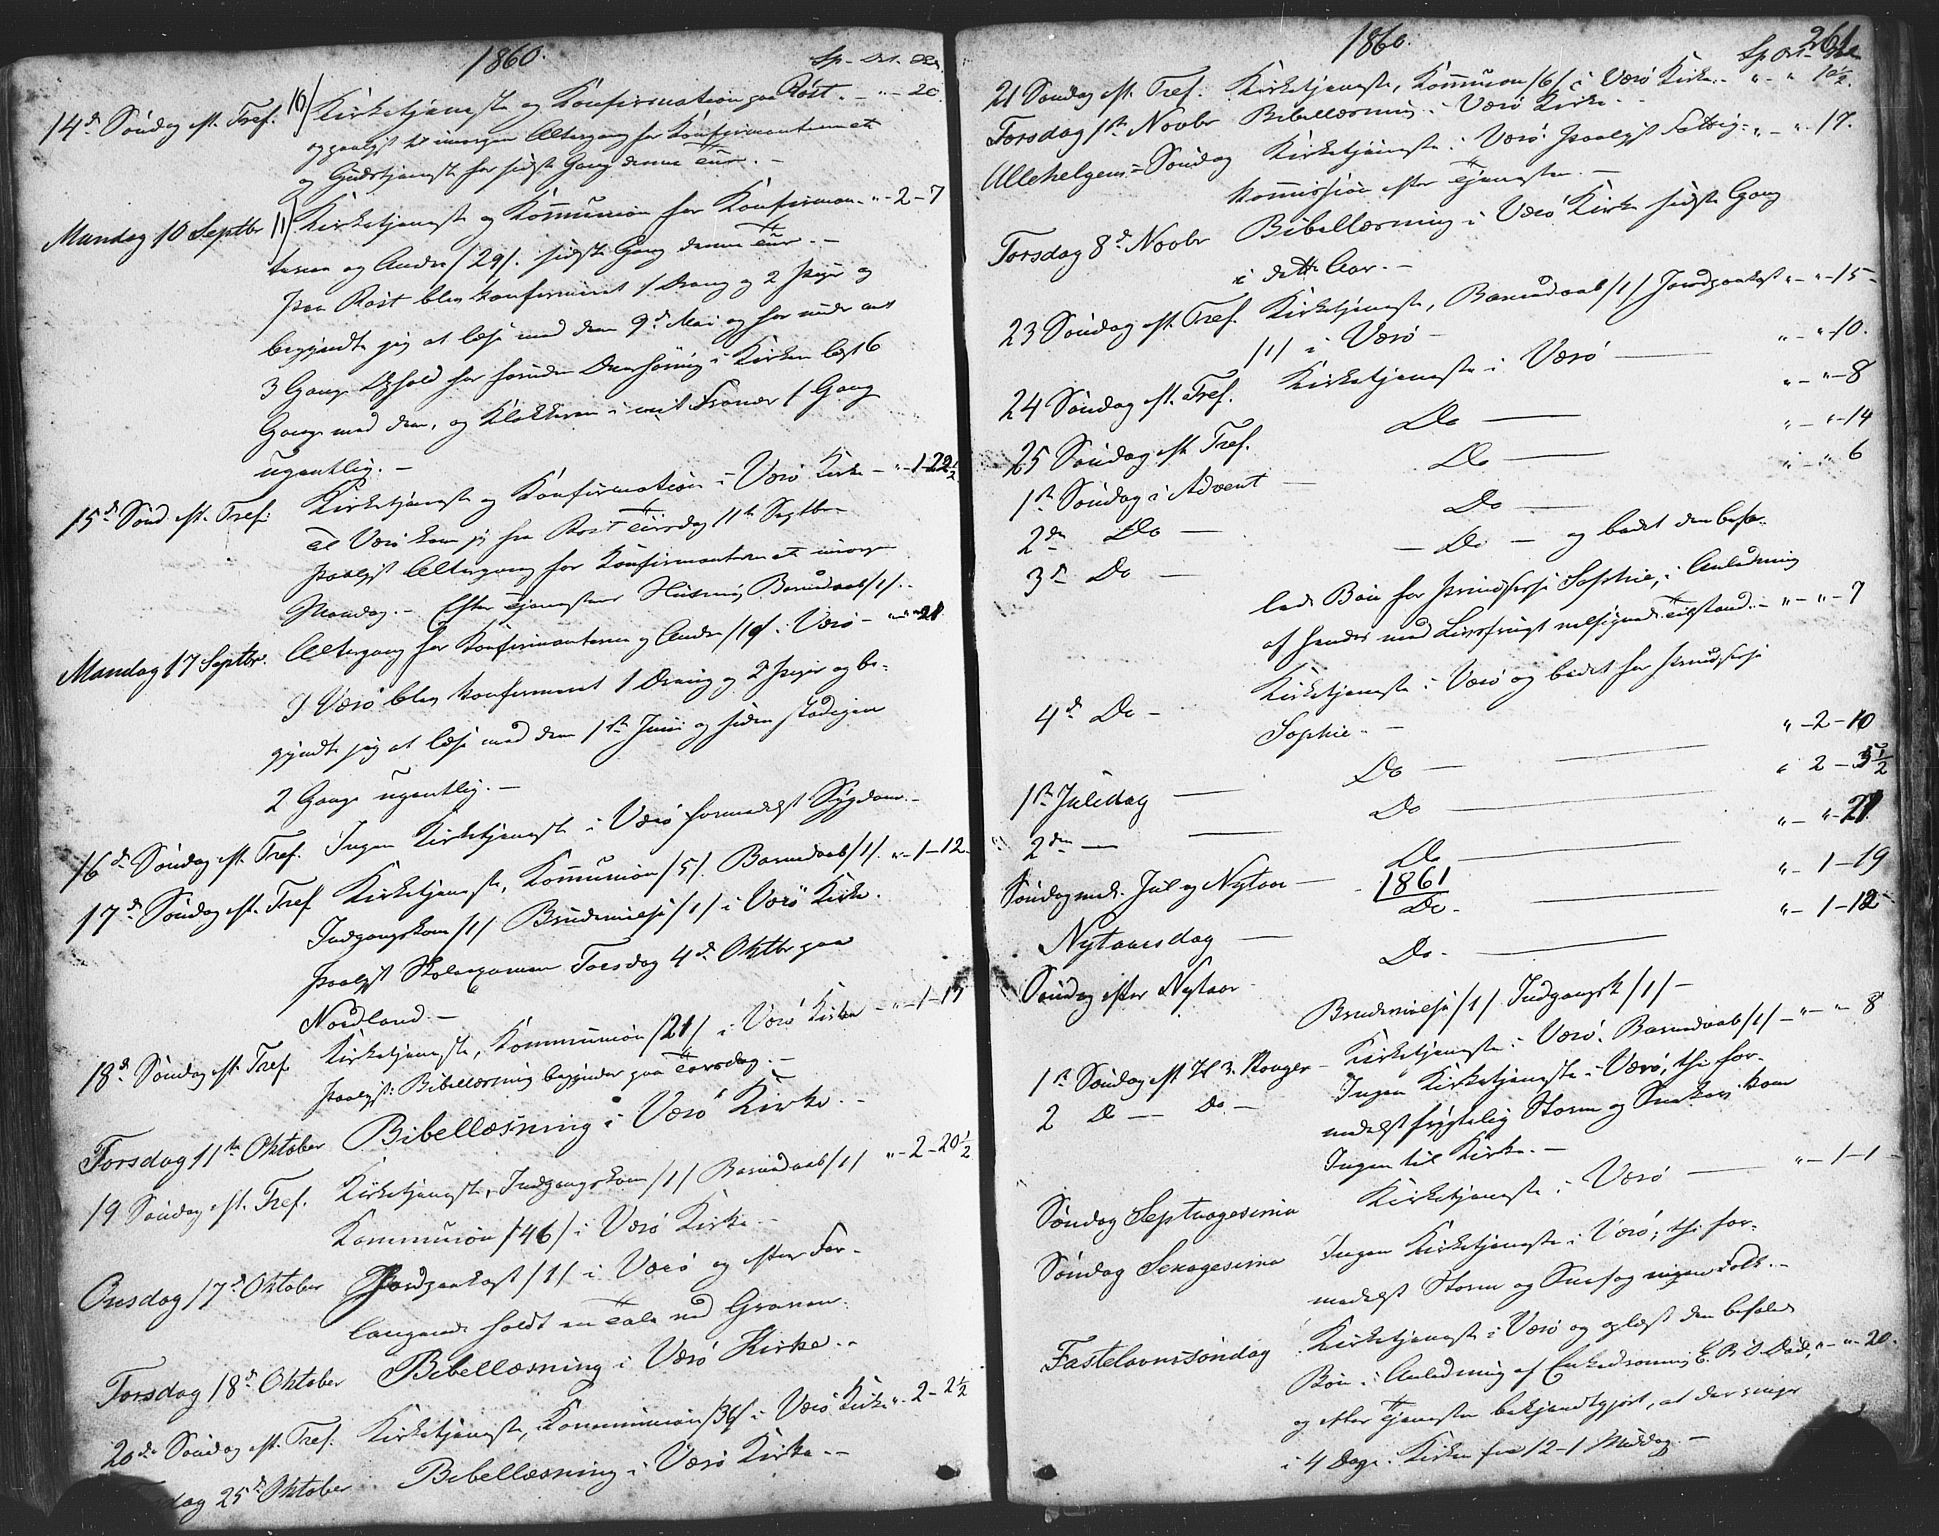 1860.
Sp. Ort. Sk.
14de Söndag eft. Tref. 16/ Kirketjeneste og Konfirmation paa Röst. - " - 20
og paalyst til imorgen Altergang for Konfirmanterne etc
og Gudstjeneste for sidste Gang denne Tur. -
Mandag 10 Septbr 11/ Kirketjeneste og Kommunion for Konfirman- " - 2 - 7
terne og Andre /29/. sidste Gang denne Tur. -
Paa Röst blev konfirmeret 1 Dreng og 2 Piger og
begyndte jeg at læse med dem 9de Mai og har under mit
3 Gange Ophold har foruden Overhöring i Kirken læst 6
Gange med dem, og Klokkeren i mit Fravær 1 Gang
ugentlig. -
15de Sönd eft. Tref. Kirketjeneste og Konfirmation i Værö Kirke - " - 1 - 22½
Til Værö kom jeg fra Röst Tirsdag 11te Septbr
Paalyst Altergang for Konfirmanterne etc imorgen
Mandag. - Efter Tjenesten Barnedaab /1/. -
Mandag 17 Septbr. Altergang for Konfirmanterne og Andre /19/ i Værö - " - " 21
I Værö blev konfirmeret 1 Dreng og 2 Piger og be-
gyndte jeg at læse med dem 1ste Juni og siden stadigen
2 Gange ugentlig. -
16de Söndag eft. Tref. Ingen Kirketjeneste i Værö formedelst Sygdom. -
17de Söndag eft. Tref Kirketjeneste, Kommunion /5/. Barnedaab /1/. " - 1 - 12
Indgangskone /1/ Brudevielse /1/ i Værö Kirke.
Paalyst Skoleexamen Torsdag 4de Oktbr paa
Nordland. -
18de Söndag eft. Tref Kirketjeneste, Kommunion /21/ i Værö Kirke - " - 1 - 15
Paalyst: Bibellæsning begynder paa Torsdag. -
Torsdag 11te Oktober Bibellæsning i Værö Kirke. -
19 Söndag eft. Tref. Kirketjeneste, Indgangskone /1/ Barnedaab /1/ " - 2 - 20½
Kommunion /46/ i Værö Kirke -
Onsdag 17de Oktober Jordpaakast /1/ i Værö og efter For-
langende holdt en Tale ved Graven.
Torsdag 18de Oktober Bibellæsning i Værö Kirke. -
20de Söndag eft. Tref. Kirketjeneste, Kommunion /34/ i Værö Kirke " - 2 - 2½
dag 25de Oktober Bibellæsning i Værö Kirke - -
1860.
261
Sp Ort Sk
21 Söndag eft. Tref. Kirketjeneste, Kommunion /6/ i Værö Kirke - " - " 10½.
Torsdag 1ste Novbr Bibellæsning i Værö Kirke. -
Allehelgens-Söndag Kirketjeneste i Værö Paalyst Fattig- " - " - 17.
kommission efter Tjenesten. -
Torsdag 8de Novbr Bibellæsning i Værö Kirke sidste Gang
i dette Aar. -
23 Söndag eft. Tref. Kirketjeneste, Barnedaab /1/ Jordpaakast " - " - 15 -
/1/ i Værö -
24 Söndag eft. Tref. Kirketjeneste i Værö - " - " - 10.
25 Söndag eft. Tref. Do - " - " - 8
1ste Söndag i Advent - Do - " - " - 14
2den Do - Do - " - " 6
3de Do - - Do - og bedet den befa-
lede Bön for Prindsesse Sophie, i Anledning
af hendes med Livsfrugt velsignede Tilstand. - " - " - 7
4de Do - Kirketjeneste i Værö og bedet for Prindsesse
Sophie. -
1ste Juledag - Do - " - 2 - 10
2den - Do - " 2 - 3½
Söndag ml. Jul og Nytaar - Do - " - " - 21
1861
Nytaarsdag - Do - " - 1 - 19
Söndag efter Nytaar - Do - " - 1 - 12
Brudevielse /1/ Indgangsk /1/ -
1ste Söndag eft H. 3. Konger - Kirketjeneste i Værö. Barnedaab /1/ - " - " 8
2 Do - Do - Ingen Kirketjeneste i Værö, thi for-
medelst frygtelig Storm og Snekov kom
Ingen til Kirke. -
Söndag Septuagesima Kirketjeneste i Værö - " - 1 - 1 -
Söndag Sexagesima Ingen Kirketjeneste i Værö, thi for-
medelst Storm og Snefog ingen Folk. -
Fastelavnssöndag Kirketjeneste i Værö og oplæst den befalede
Bön i Anledning af Enkedronning E. B. D. Död, " - " - 20.
og efter Tjenesten bekjendtgjort, at der ringes
i 4 Dage i Kirken fra 12-1 Middag. -